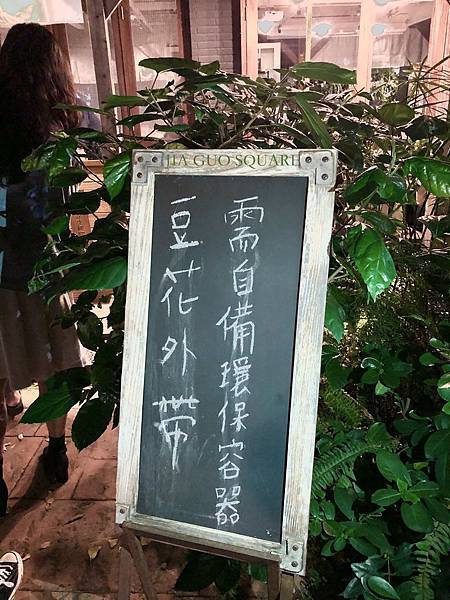 JIA GUO SQUARE
豆花外帶
需自備環保容器